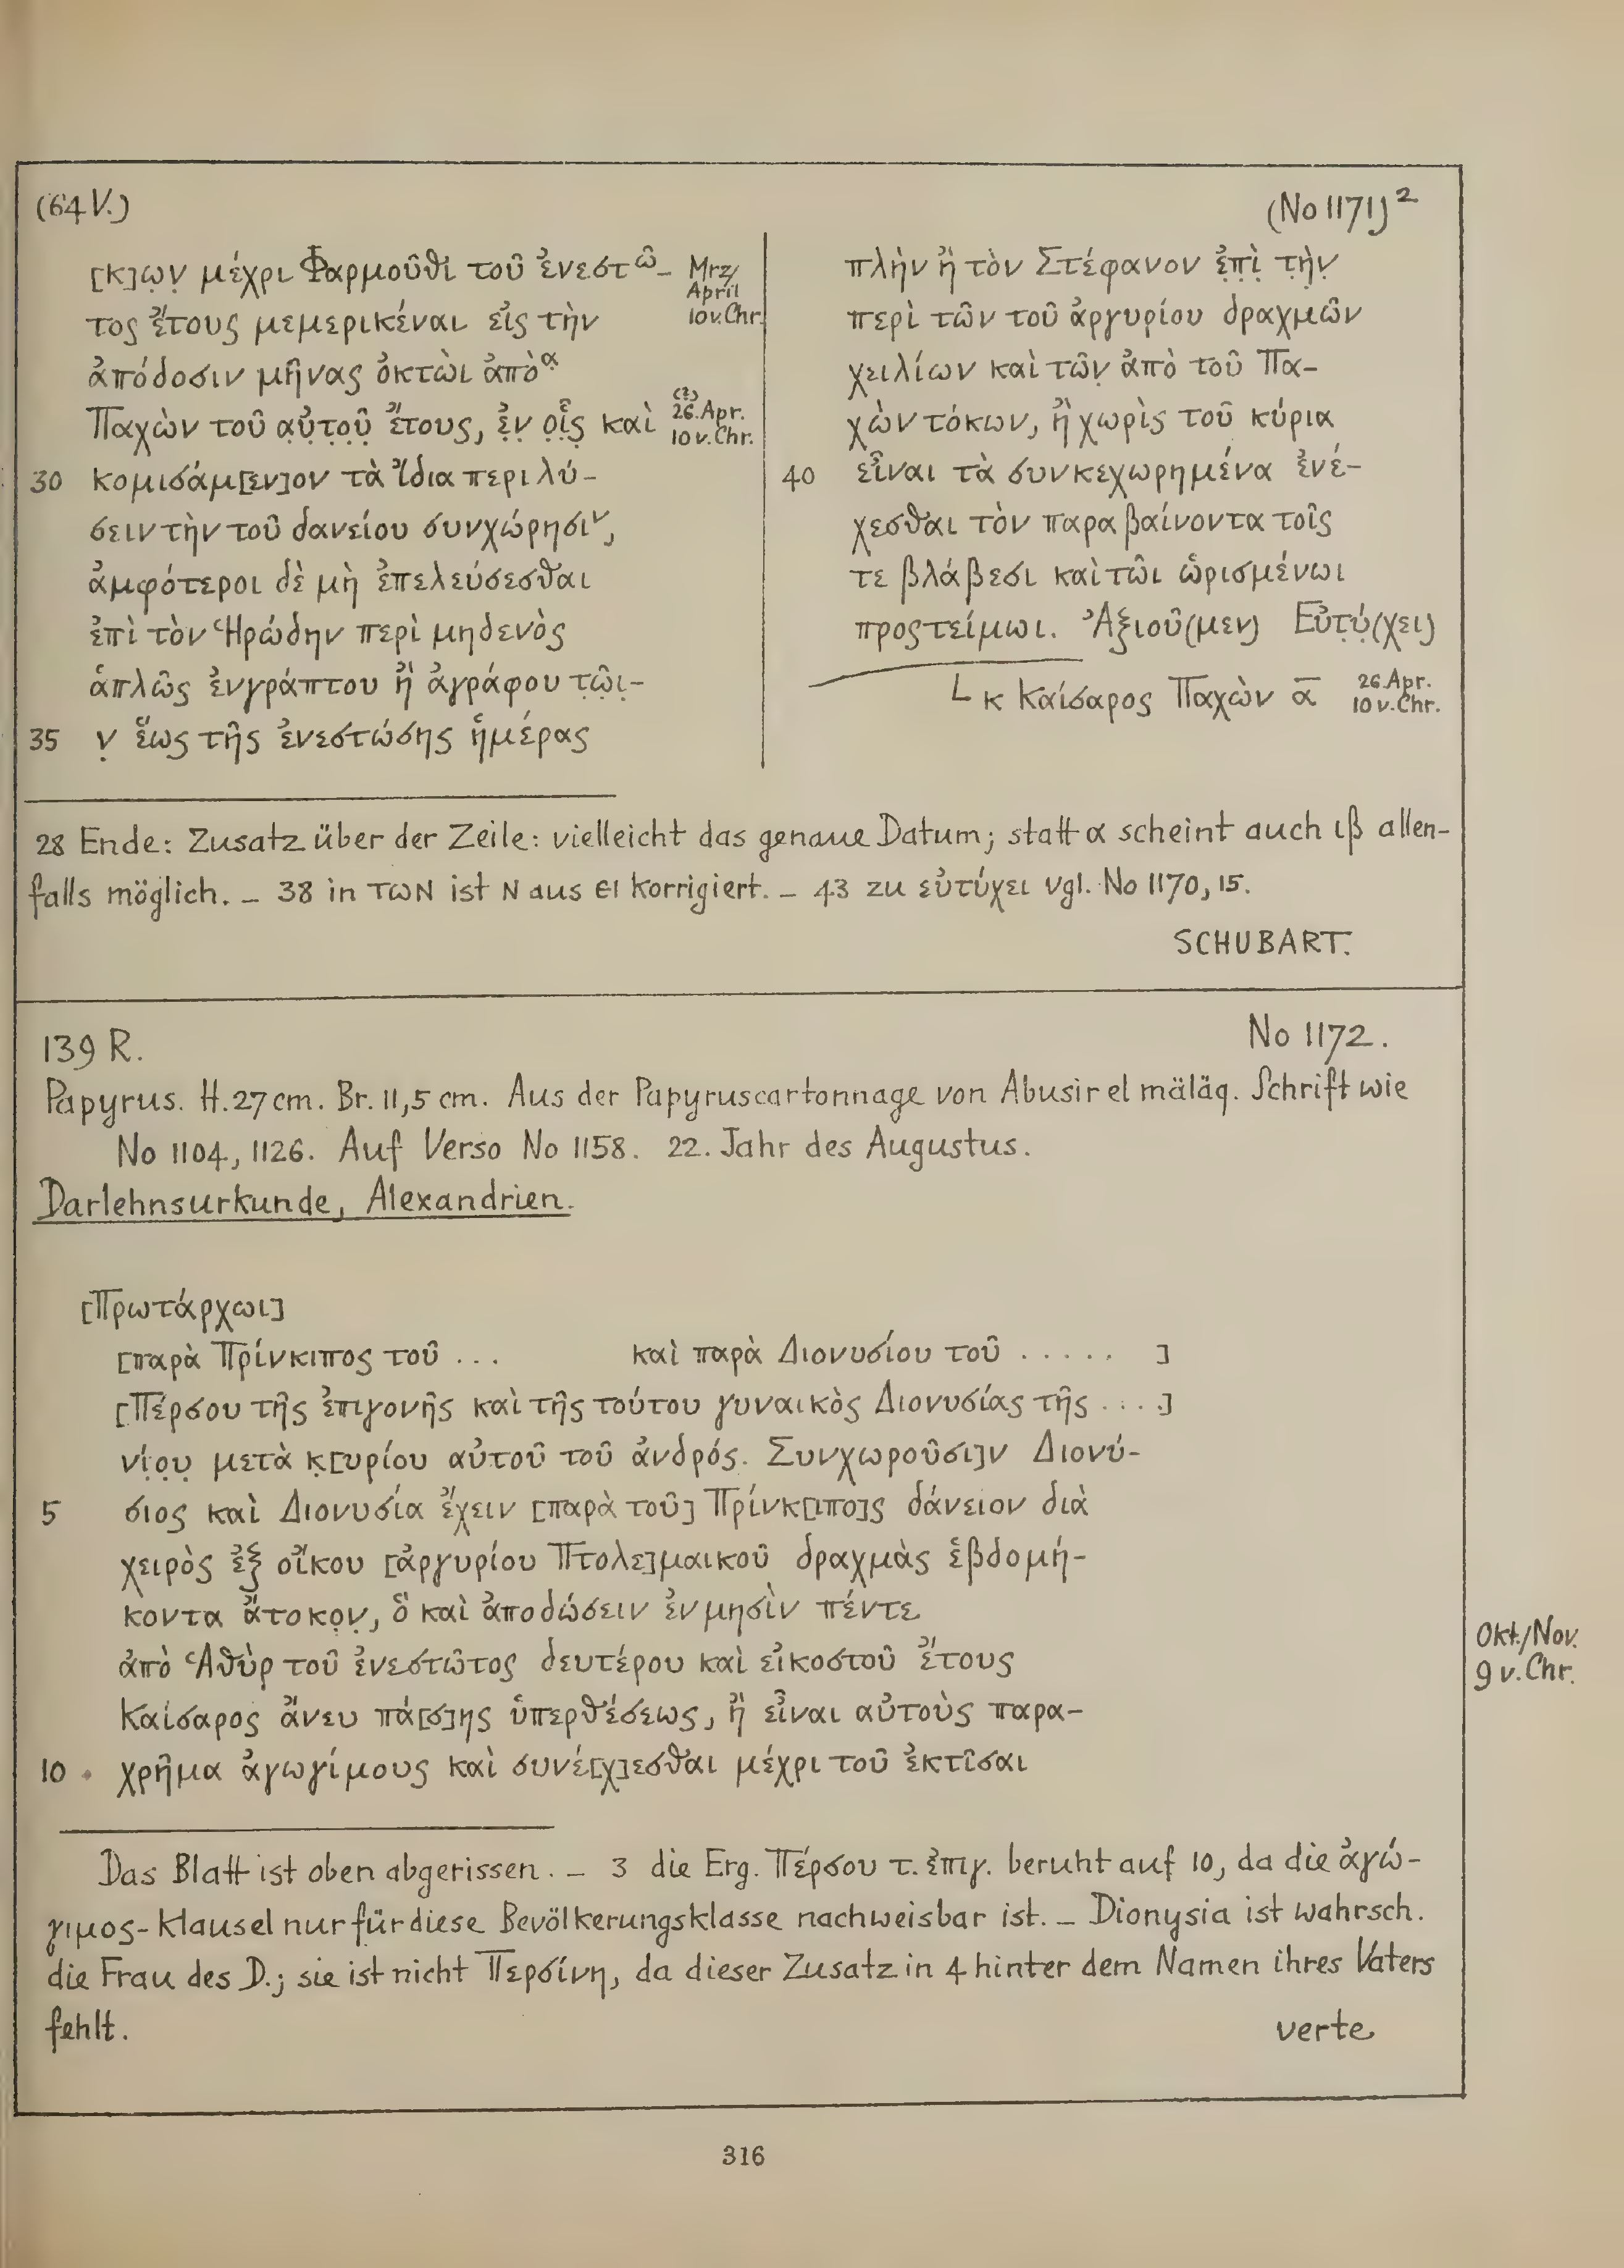 (64 V.)
(No 1171)²
[κ]ων μέχρι Φαρμοῦθι τοῦ ἐνεστῶ-
Mrz/
April
10 v. Chr.
τος ἔτους μεμερικέναι εἰς τὴν
ἀπόδοσιν μῆνας ὀκτὼι ἀπὸ α
Παχὼν τοῦ α̣ὐ̣τ̣ο̣ῦ̣ ἔτους, ἐ̣ν̣ ο̣ἷ̣ς̣ καὶ
(?)
26. Apr.
10 v. Chr.
30 κομισάμ[εν]ον τὰ ἴδια περιλύ-
σειν τὴν τοῦ δανείου συνχώρησιν,
ἀμφότεροι δὲ μὴ ἐπελεύσεσθαι
ἐπὶ τὸν Ἡρώδην περὶ μηδενὸς
ἁπλῶς ἐνγράπτου ἢ ἀγράφου τ̣ῶ̣ι̣-
35 ν̣ ἕως τῆς ἐνεστώσης ἡμέρας
πλὴν ἢ τὸν Στέφανον ἐ̣π̣ὶ̣ τ̣ὴ̣ν̣
περὶ τῶν τοῦ ἀργυρίου δραχμῶν
χειλίων καὶ τῶν̣ ἀπὸ τοῦ Πα-
χὼν τόκων, ἢ χωρὶς τοῦ κύρια
40 εἶναι τὰ συνκεχωρημένα ἐνέ-
χεσθαι τὸν παραβαίνοντα τοῖς
τε βλάβεσι καὶ τῶι ὡρισμένωι
προστείμωι. Ἀξιοῦ(μεν) Εὐτ̣ύ̣(χει)
└ κ Καίσαρος Παχὼν α̅
26. Apr.
10 v. Chr.
28 Ende: Zusatz über der Zeile: vielleicht das genaue Datum; statt α scheint auch ιβ allen-
falls möglich. – 38 in τωΝ ist Ν aus ЄΙ korrigiert. – 43 zu εὐτύχει vgl. No 1170, 15.
SCHUBART.
139 R.
No 1172.
Papyrus. H. 27 cm. Br. 11,5 cm. Aus der Papyruscartonnage von Abusir el mäläq. Schrift wie
No 1104, 1126. Auf Verso No 1158. 22. Jahr des Augustus.
Darlehnsurkunde, Alexandrien.
[Πρωτάρχωι]
[παρὰ Πρίνκιπος τοῦ ... καὶ παρὰ Διονυσίου τοῦ ..... ]
[Πέρσου τῆς ἐπιγονῆς καὶ τῆς τούτου γυναικὸς Διονυσίας τῆς ....]
νί̣ο̣υ̣ μετὰ κ̣[υρίου αὐτοῦ τοῦ ἀνδρός. Συνχωροῦσι]ν Διονύ-
5 σιος καὶ Διονυσία ἔχειν [παρὰ τοῦ] Πρίνκ[ιπο]ς δάνειον διὰ
χειρὸς ἐξ οἴκου [ἀργυρίου Πτολε]μαικοῦ δραχμὰς ἑβδομή-
κοντα ἄτοκο̣ν̣, ὃ καὶ ἀποδώσειν ἐν μησὶν πέντε
ἀπὸ Ἁθὺρ τοῦ ἐνεστῶτος δευτέρου καὶ εἰκοστοῦ ἔτους
Okt./Nov.
9 v. Chr.
Καίσαρος ἄνευ πά[σ]ης ὑπερθέσεως, ἢ εἶναι αὐτοὺς παρα-
10 χρῆμα ἀγωγίμους καὶ συνέ[χ]εσθαι μέχρι τοῦ ἐκτῖσαι
Das Blatt ist oben abgerissen. – 3 die Erg. Πέρσου τ. ἐπιγ. beruht auf 10, da die ἀγώ-
γιμος-Klausel nur für diese Bevölkerungsklasse nachweisbar ist. – Dionysia ist wahrsch.
die Frau des D.; sie ist nicht Περσίνη, da dieser Zusatz in 4 hinter dem Namen ihres Vaters
fehlt.
verte
316